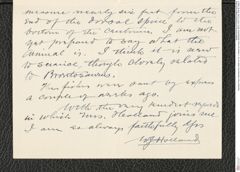 measure nearly six feet from the
end of the dorsal spine to the
bottom of the centrum. I am not
yet prepared to say what the
animal is. I think it is new
to science, though closely related
to Brontosaurus.
The fishes were sent by express
a couple of weeks ago.
With the very kindest regards
in which Mrs. Holland joins me
I am as always faithfully yrs
W J Holland